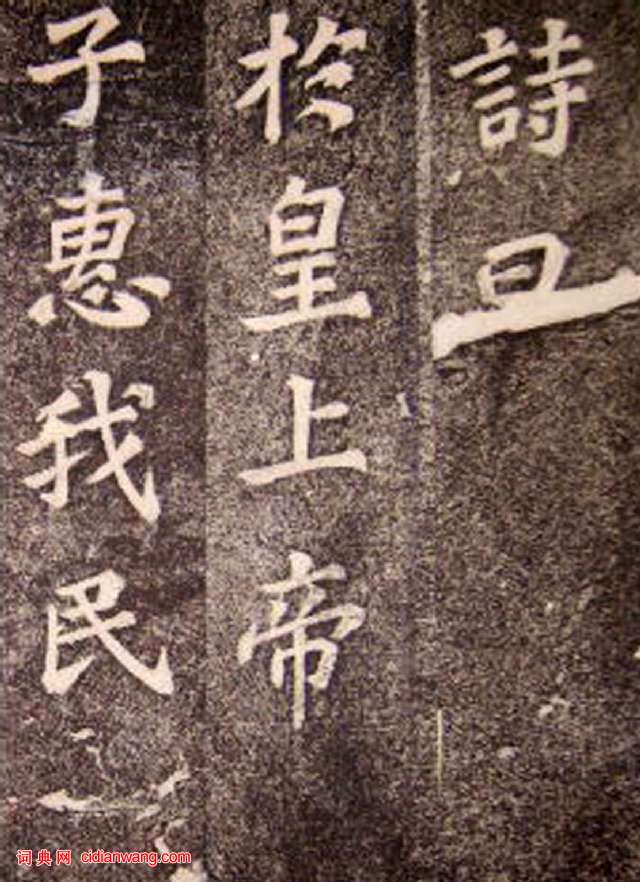 詩曰
於皇上帝
子惠我民
词典网 cidianwang.com